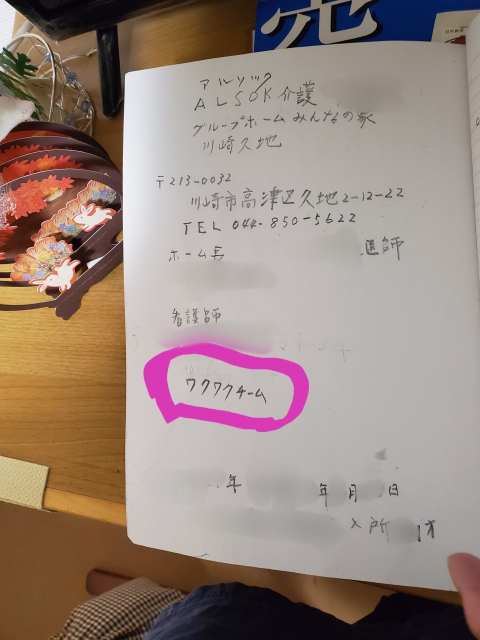 アルソック
ALSOK介護
グループホームみんなの家
川崎久地
〒213-0032
川崎市高津区久地2-12-22
TEL 044-850-5622
ホーム長
医師
看護師
ワクワクチーム
年 年月 日
入所 才